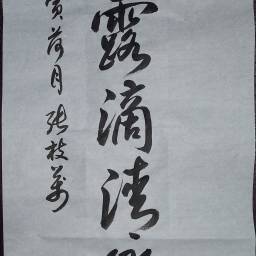 露滴清響
寅荷月張枝萬